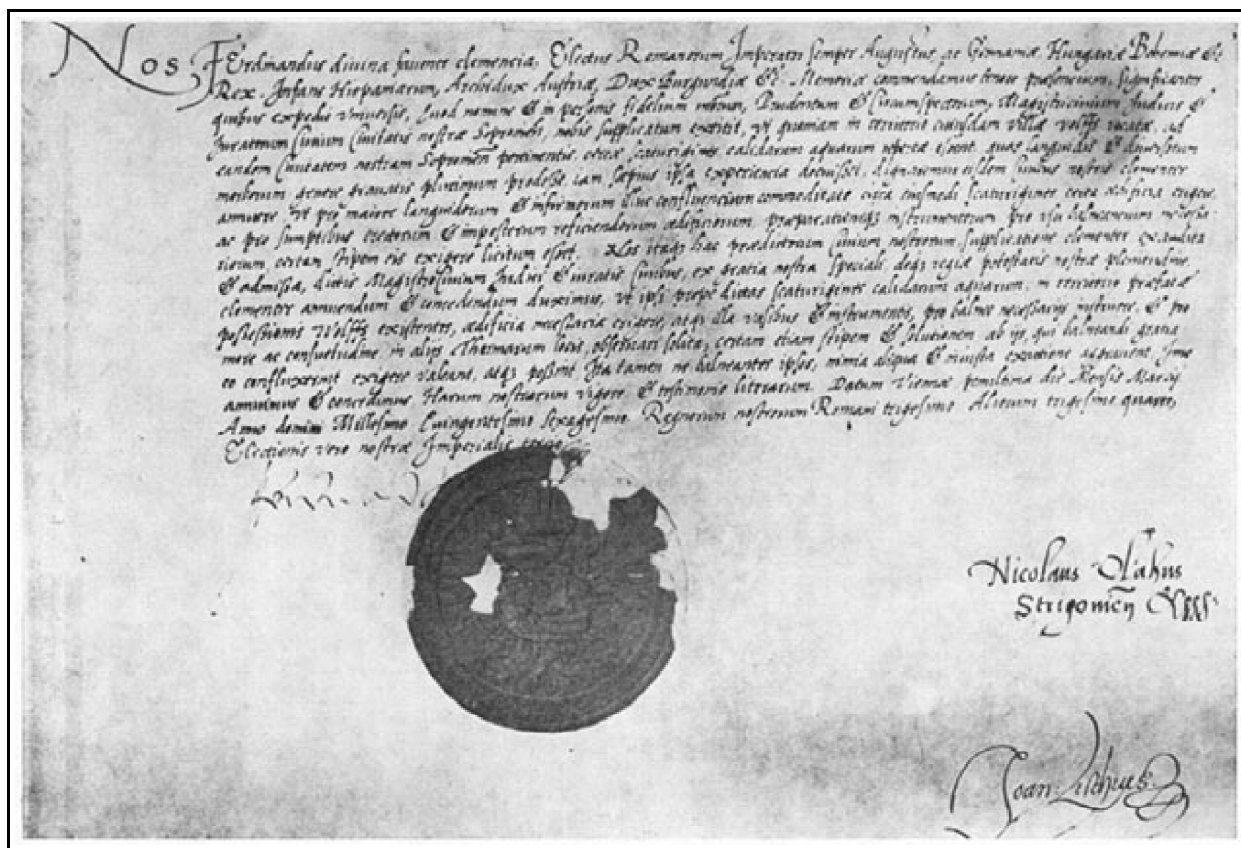 Nos Ferdinandus divina favente clemencia, Electus Romanorum Imperator semper Augustus, ac Germaniæ, Hungariæ Bohemiæ &c
Rex, Infans Hispaniarum, Archidux Austriæ, Dux Burgundiæ &c. Memoriæ commendamus tenore præsencium, significantes
quibus expedit vniuersis, Quod nomine & in personis fidelium nostrorum, Prudentum & Circumspectorum, Magistriciuium, Iudicis &
Iuratorum Ciuium Ciuitatis nostræ Soproniensis, nobis supplicatum extitit, vt quoniam in territorio cuiusdam villæ Volffs vocatæ, ad
eandem Ciuitatem nostram Sopronien pertinentis, certæ scaturigines calidarum aquarum repertæ essent, quas languidis & diuersorum
morborum genere grauatis plurimum prodesse, iam sæpius ipsa experiencia docuisset, dignaremur eisdem ciuibus nostris clementer
annuere, vt pro maiore languidorum & infirmorum illuc confluencium commoditate circa eiusmodi scaturigines certa ædificia erigere,
ac pro sumptibus erectorum & imposterum reficiendorum ædificiorum, præparationeqz instrumentorum pro vsu balneorum necessa
riorum certam stipem eis exigere licitum esset. Nos itaqz hac prædictorum ciuium nostrorum supplicatione clementer exaudita
& admissa, dictis Magistrociuium, Iudici & iuratis ciuibus, ex gratia nostra speciali, deqz regiæ potestatis nostræ plenitudine,
clementer annuendum & concedendum duximus, vt ipsi prope dictas scaturigines calidarum aquarum, in territorio præfatæ
possessionis Volffs existentes, ædificia necessaria erigere, atqz illa vasibus & instrumentis, pro balneis necessarijs instruere, & pro
more ac consuetudine, in alijs Thermarum locis, obseruari solita, certam etiam stipem & solutionem ab ijs, qui balneandi gratia
eo confluxerint exigere valeant, atqz possint Ita tamen ne balneantes ipsos, nimia aliqua & inuisita exactione aggrauent, Imo
annuimus & concedimus Harum nostrarum vigore & testimonio literarum. Datum Viennæ penultima die Mensis Marcij
Anno domini Millesimo Quingentesimo sexagesimo. Regnorum nostrorum Romani trigesimo Aliorum trigesimo quarto,
Electionis vero nostræ Imperialis
Nicolaus Olahus
Strigonien
Joan: Listhius